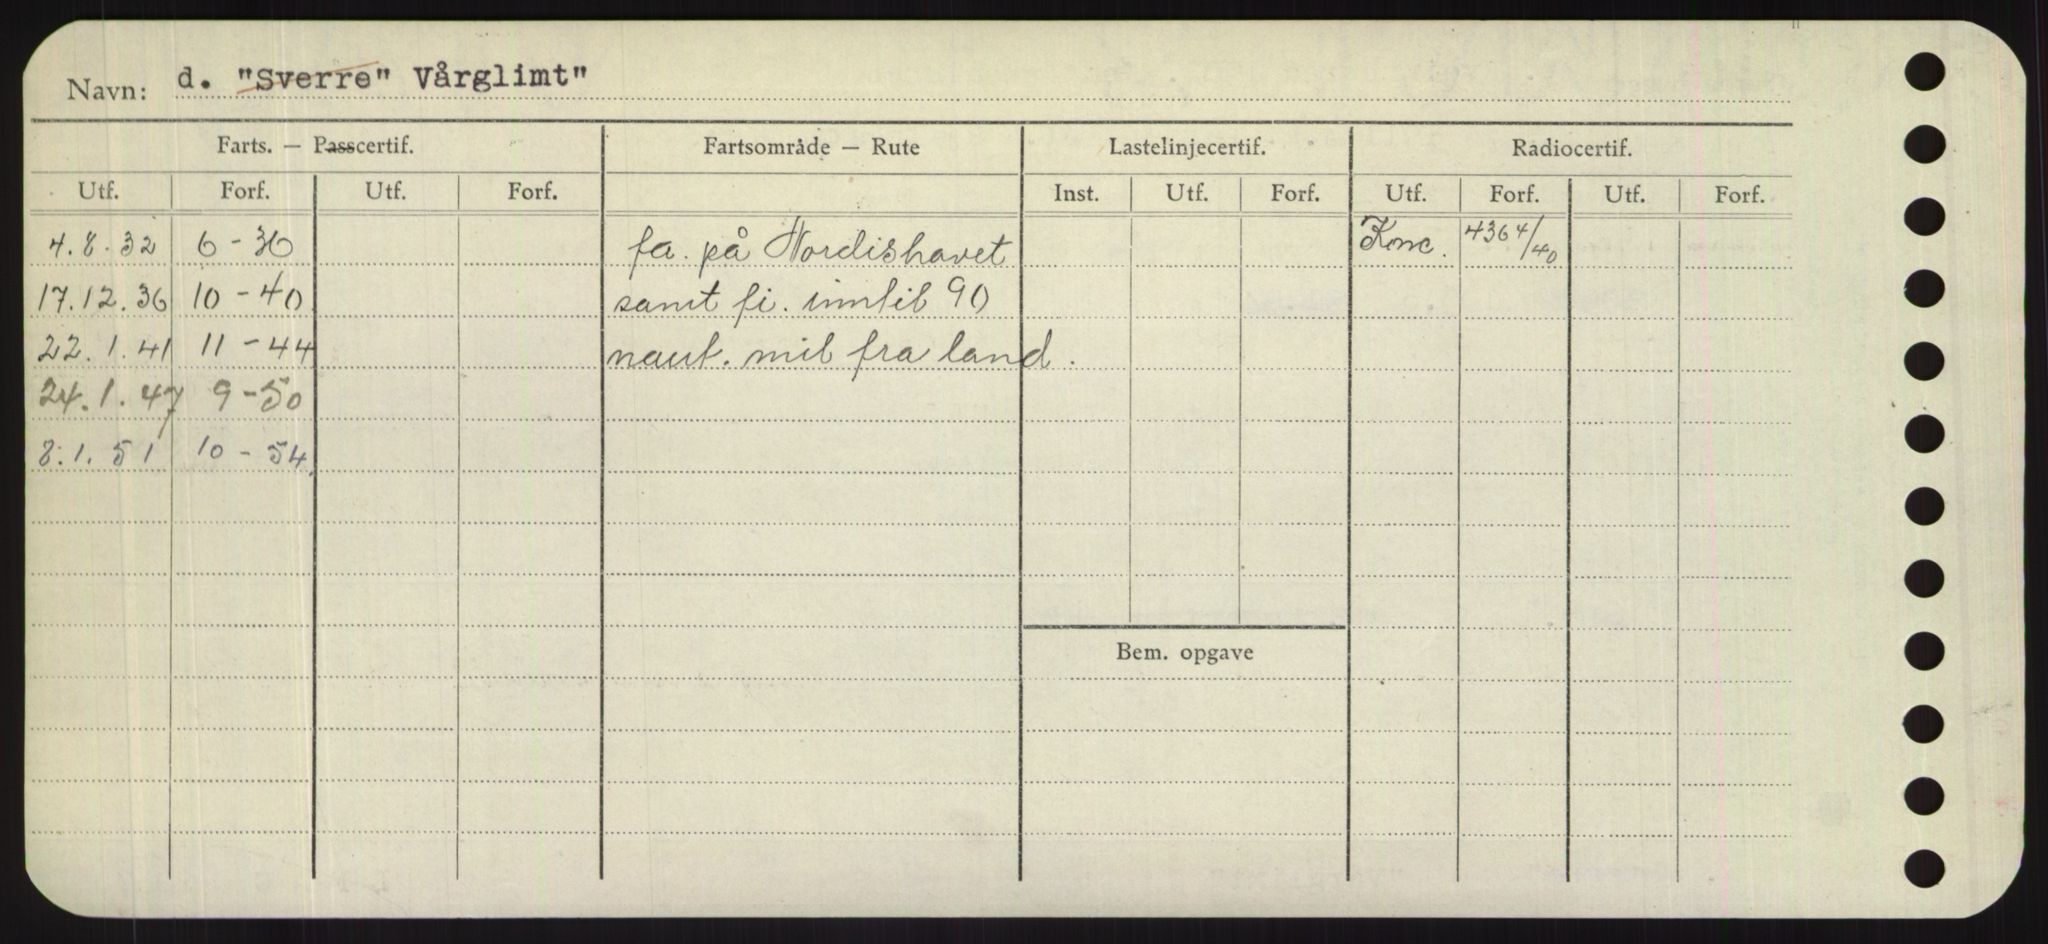 Navn: d. "Sverre" Vårglimt"
Farts. — Passcertif. Fartsområde — Rute Lastelinjecertif. Radiocertif.
Utf. Forf. Utf. Forf. Inst. Utf. Forf. Utf. Forf. Utf. Forf.
4.8.32 6-36 fa. på Nordishavet Konc. 4364/40
17.12.36 10-40 samt fi. inntil 90
22.1.41 11-44 naut. mil fra land.
24.1.47 9-50
8.1.51 10-54.
Bem. opgave